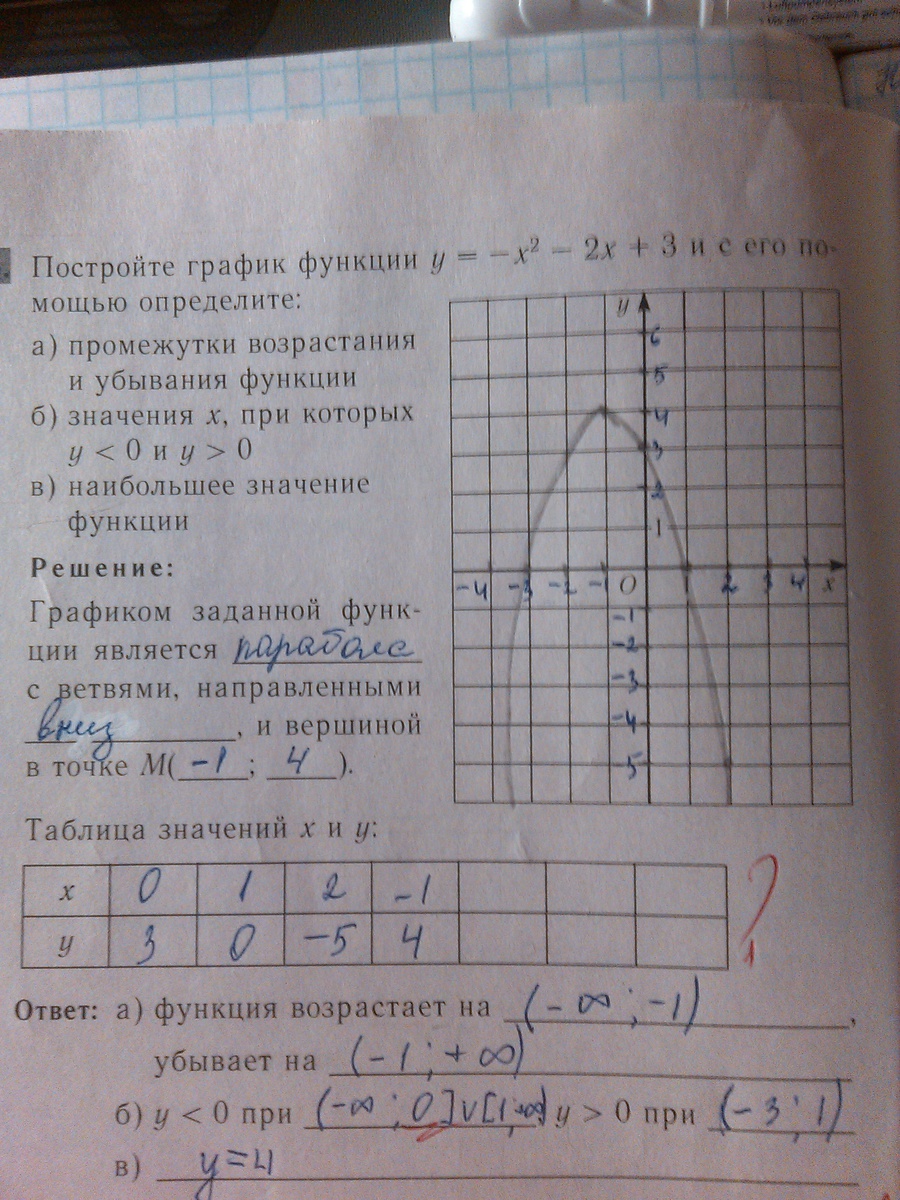 Постройте график функции y = −x² − 2x + 3 и с его по-
мощью определите:
а) промежутки возрастания
и убывания функции
б) значения x, при которых
y < 0 и y > 0
в) наибольшее значение
функции
Решение:
Графиком заданной функ-
ции является парабола
с ветвями, направленными
вниз, и вершиной
в точке M( -1 ; 4 ).
y
6
5
4
3
2
1
-4 -3 -2 -1 O 2 3 4 x
-1
-2
-3
-4
-5
Таблица значений x и y:
x 0 1 2 -1
y 3 0 -5 4
?
Ответ: а) функция возрастает на (-∞; -1),
убывает на (-1; +∞)
б) y < 0 при (-∞; 0]∪[1; +∞) y > 0 при (-3; 1)
в) y=4